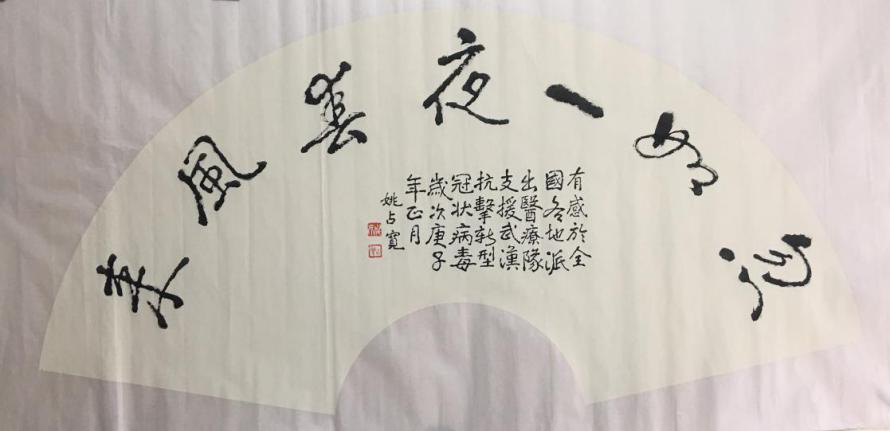 忽如一夜春風来
有感於全
國各地派
出醫療隊
支援武漢
抗擊新型
冠状病毒
歲次庚子
年正月
姚占寬